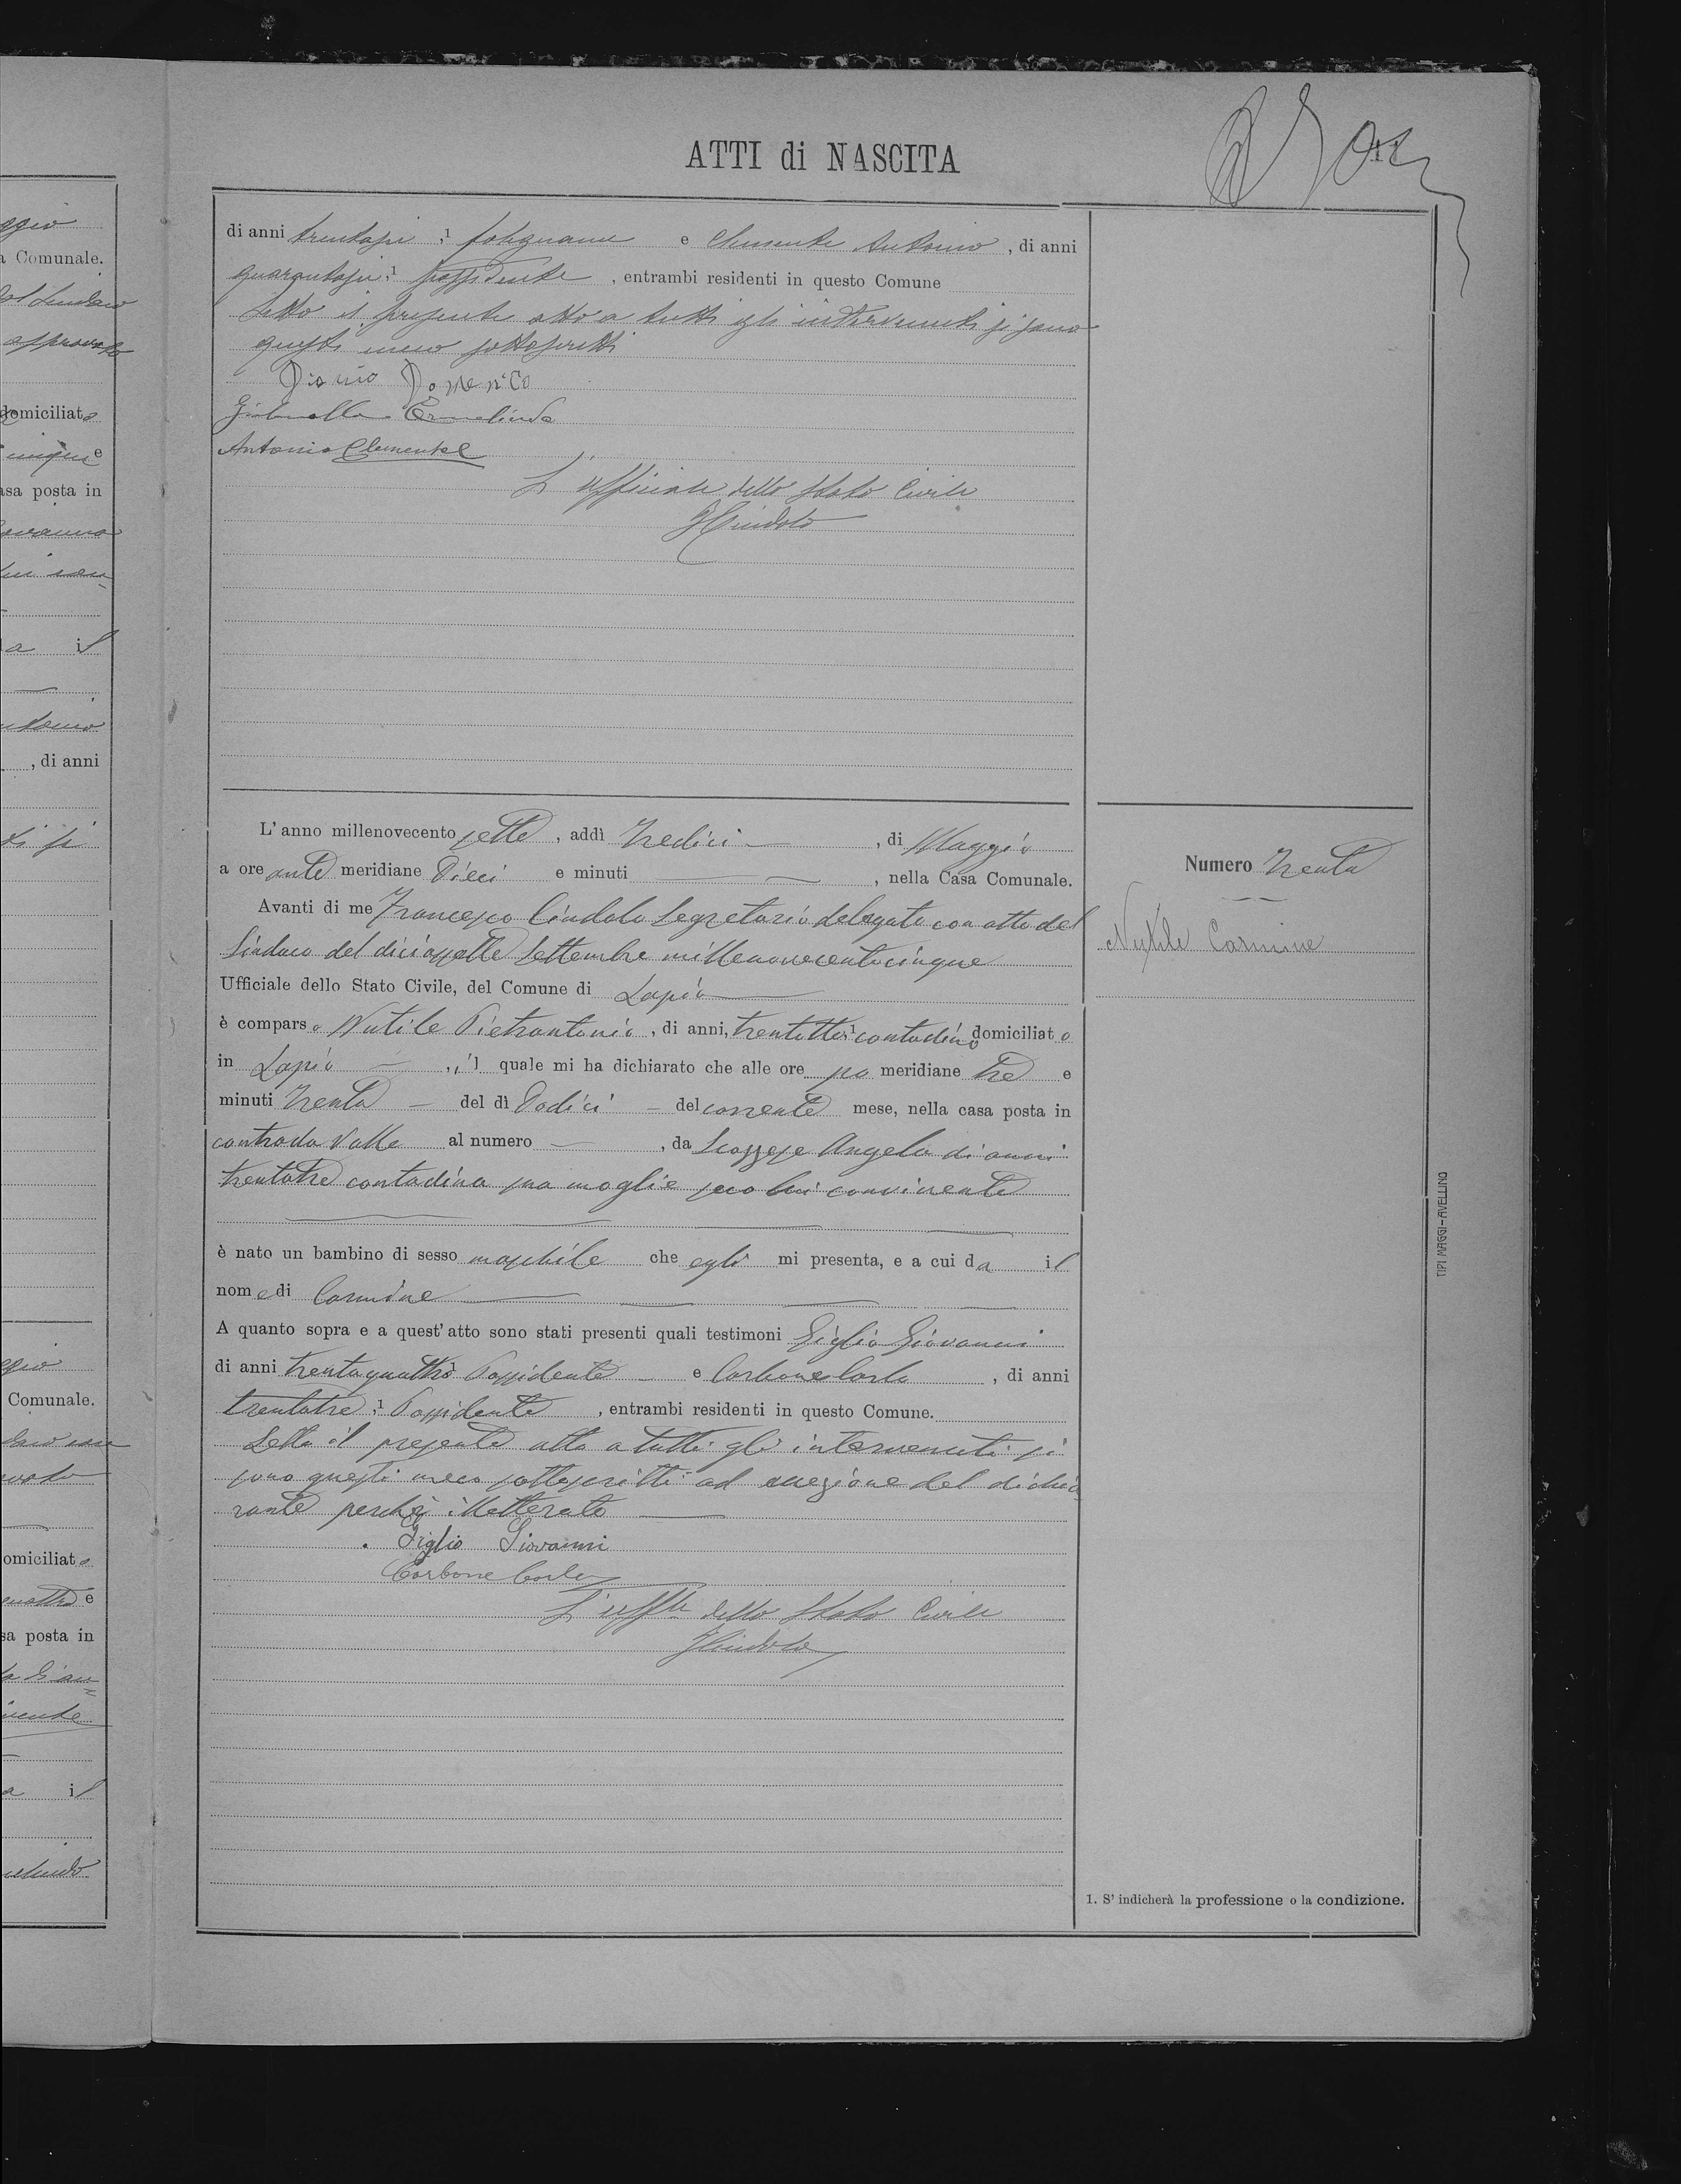 ATTI di NASCITA
di anni trentasei ;1 falegname e Clemente Antonio, di anni
quarantasei ;1 possidente, entrambi residenti in questo Comune
Letto il presente atto a tutti gli intervenuti si sono
questi meco sottoscritti
Domenico
Ermelinda
Antonio Clemente
L'ufficiale dello Stato Civile
FCindolo
L'anno millenovecento sette, addì Tredici, di Maggio
a ore ante meridiane Dieci e minuti —, nella Casa Comunale.
Avanti di me Francesco Cindolo Segretario delegato con atto del
Sindaco del diciassette Settembre millenovecentocinque
Ufficiale dello Stato Civile, del Comune di Lapio
è comparso Nutile Pietrantonio, di anni, trentotto ;1 contadino domiciliato
in Lapio —, il quale mi ha dichiarato che alle ore po meridiane tre e
minuti Trenta — del dì Dodici — del corrente mese, nella casa posta in
contrada Valle al numero —, da Scozzese Angela di anni
trentatre contadina sua moglie seco lui convivente
è nato un bambino di sesso maschile che egli mi presenta, e a cui da il
nome di Carmine
A quanto sopra e a quest'atto sono stati presenti quali testimoni Giglio Giovanni
di anni trentaquattro ;1 Possidente — e Carbone Carlo, di anni
trentatre ;1 Possidente, entrambi residenti in questo Comune.
Letto il presente atto a tutti gli intervenuti si
sono questi meco sottoscritti ad eccezione del dichia
rante perchè illetterato
Giglio Giovanni
Carbone Carlo
L'uffle dello Stato Civile
FCindolo
Numero Trenta
Nutile Carmine
1. S'indicherà la professione o la condizione.
TIPI MAGGI-AVELLINO
ggio
a Comunale.
approvato
domiciliato
cinque e
asa posta in
a il
, di anni
Comunale.
omiciliato
quattro e
sa posta in
a il